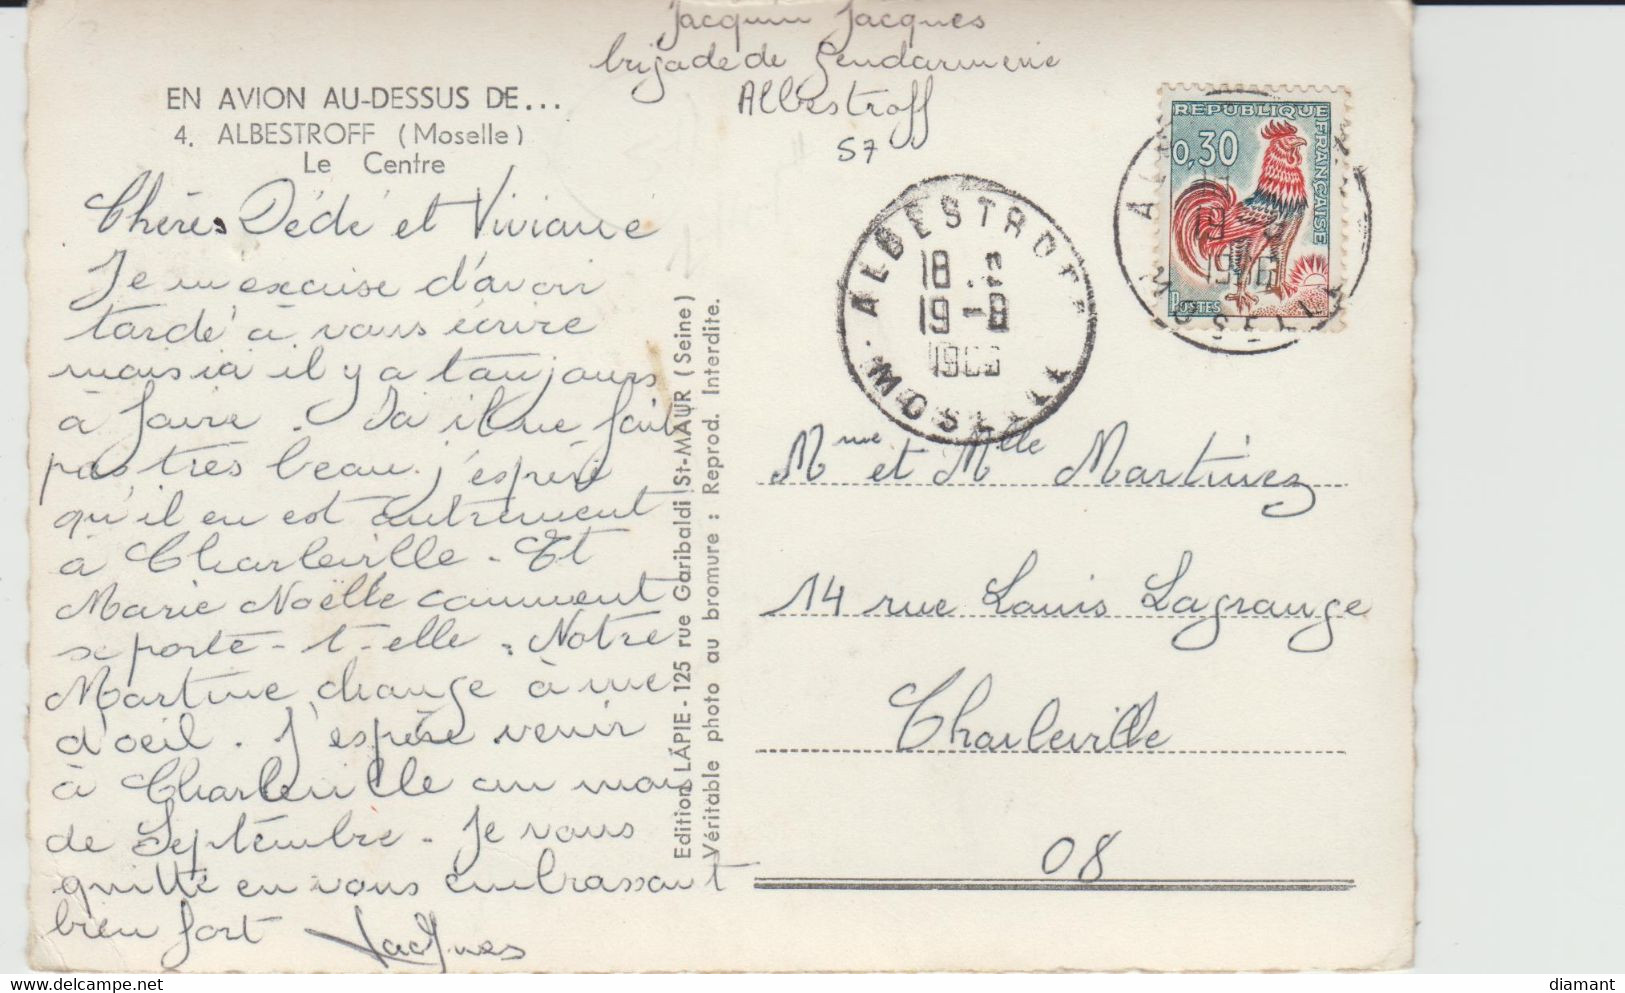 Jacquin Jacques
brigade de Gendarmerie
Albestroff
57
EN AVION AU-DESSUS DE...
4. ALBESTROFF (Moselle)
Le Centre
Chères Dédé et Viviane
Je m'excuse d'avoir
tardé à vous écrire
mais ici il y a toujours
à faire. Ici il ne fait
pas très beau. j'espère
qu'il en est autrement
à Charleville. Et
Marie Noëlle comment
se porte-t-elle. Notre
Martine change à vue
d'oeil. J'espère venir
à Charleville au mois
de Septembre. Je vous
quitte en vous embrassant
bien fort Jacques
Edition LAPIE - 125 rue Garibaldi St-MAUR (Seine)
Véritable photo au bromure : Reprod. Interdite.
ALBESTROFF
18
19-8
MOSELLE
REPUBLIQUE FRANÇAISE
0,30
POSTES
MOSELLE
Mme et Mlle Martinez
14 rue Louis Lagrange
Charleville
08
diamant